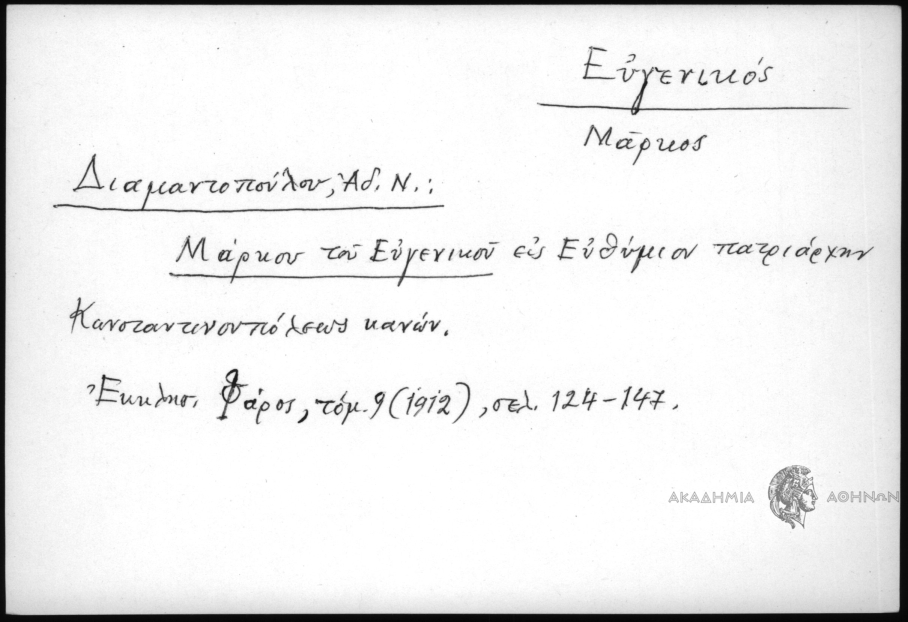 Εὐγενικός
Μᾶρκος
Διαμαντοπούλου, Ἀδ. Ν.:
Μάρκου τοῦ Εὐγενικοῦ εἰς Εὐθύμιον πατριάρχην
Κωνσταντινουπόλεως κανών.
Ἐκκλησ. Φάρος, τόμ. 9 (1912), σελ. 124-147.
ΑΚΑΔΗΜΙΑ ΑΘΗΝΩΝ